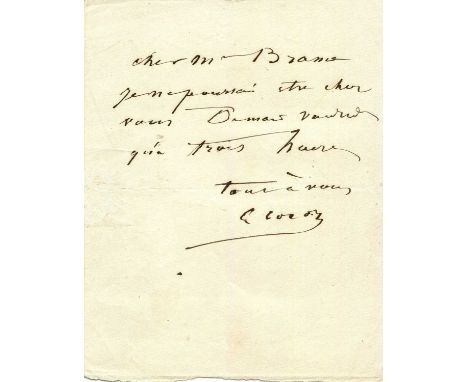 cher Mr Brame
je ne pourrai etre cher
vous Demain vendredi
qu'a trois heure
tout à vous
C. Corot